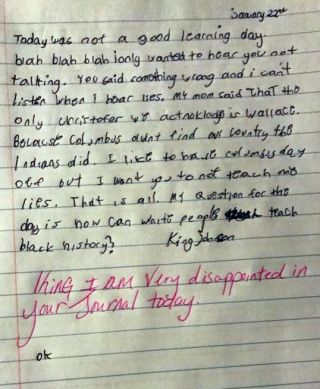 January 22nd
Today was not a good learning day.
blah blah blah i only wanted to hear you not
talking. You said something wrong and i can't
listen when I hear lies. My mom said That the
only christofer we acknoklage is wallace.
Because Columbus didnt find our country the
Indians did. I like to have columbus day
off but I want you to not teach me
lies. That is all. My question for the
day is how can white people teach
black history?
King Johnson
King I am very disappointed in
your Journal today.
ok